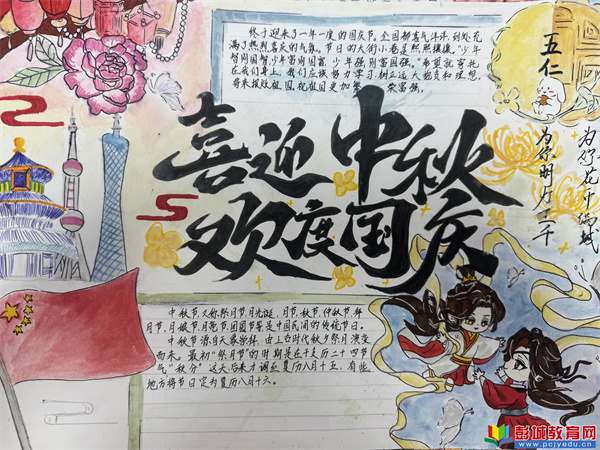 终于迎来了一年一度的国庆节。全国都喜气洋洋,到处充
满了热烈喜庆的气氛。节日的大街小巷是熙熙攘攘。“少年
智则国智,少年富则国富,少年强则国强。”希望就寄托
在我们身上。我们应该努力学习,树立远大抱负和理想,
将来报效祖国,祝祖国更加繁 荣富强。
五仁
为你花开满城
为你明灯三千
喜迎中秋
欢度国庆
中秋节,又称祭月节、月光诞、月节、秋节、仲秋节、拜
月节、月娘节、月亮节、团圆节等,是中国民间的传统节日。
中秋节源自天象崇拜,由上古时代秋夕祭月演变
而来。最初“祭月节”的时期是在干支历二十四节
气“秋分”这天,后来才调至夏历八月十五,有些
地方将节日定为夏历八月十六。
彭城教育网
www.pcjyedu.cn